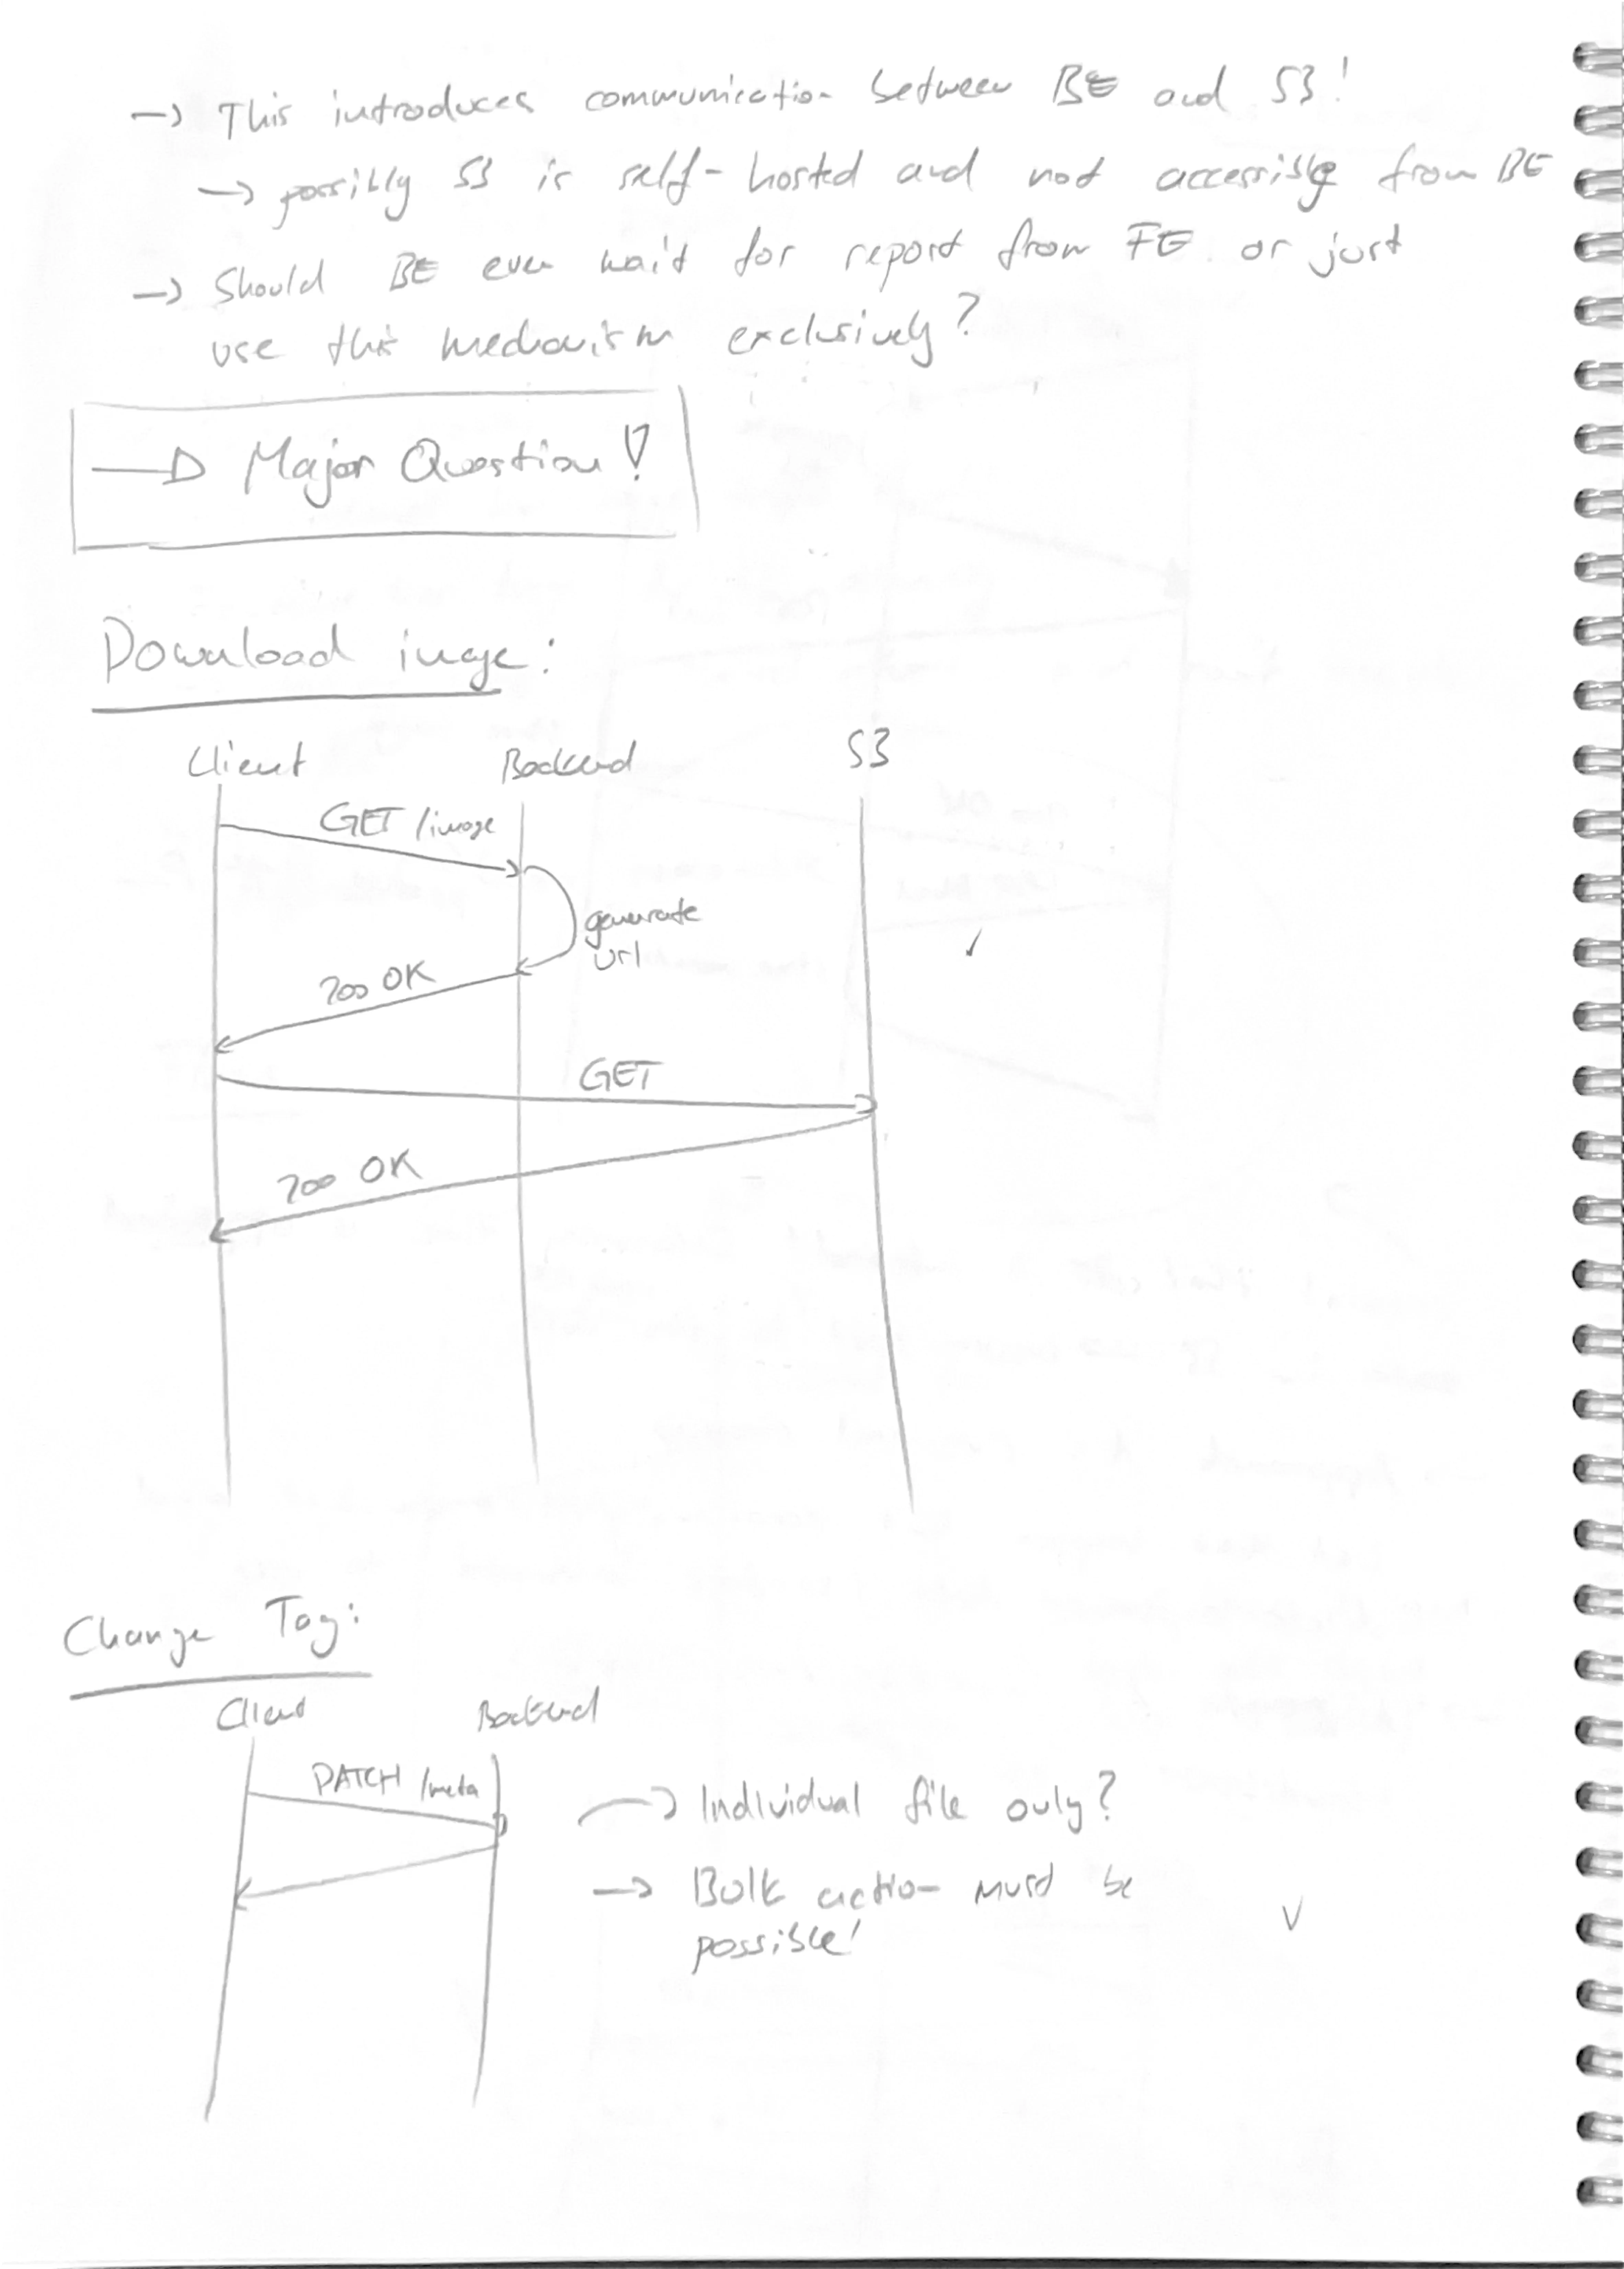 → This introduces communication between BE and S3!
→ possibly S3 is self-hosted and not accessible from BE
→ Should BE even wait for report from FE or just
use this mechanism exclusively?
→ Major Question!
Download image:
Client Backend S3
GET /image
generate
url
200 OK
GET
200 OK
Change Tag:
Client Backend
PATCH /meta
→ Individual file only?
→ Bulk action must be
possible!